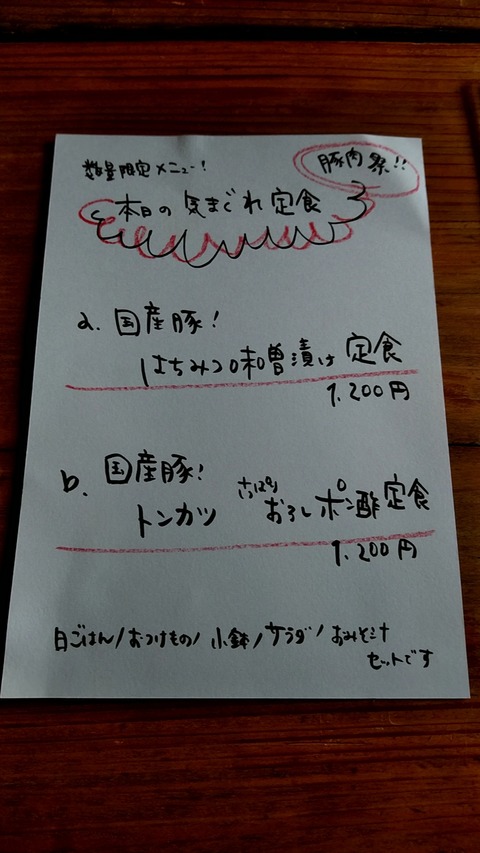 数量限定メニュー!
豚肉祭!!
本日の気まぐれ定食
a. 国産豚!
はちみつ味噌漬け定食
1.200円
b. 国産豚!
さっぱり
トンカツ おろしポン酢定食
1.200円
白ごはん/おつけもの/小鉢/サラダ/おみそ汁
セットです